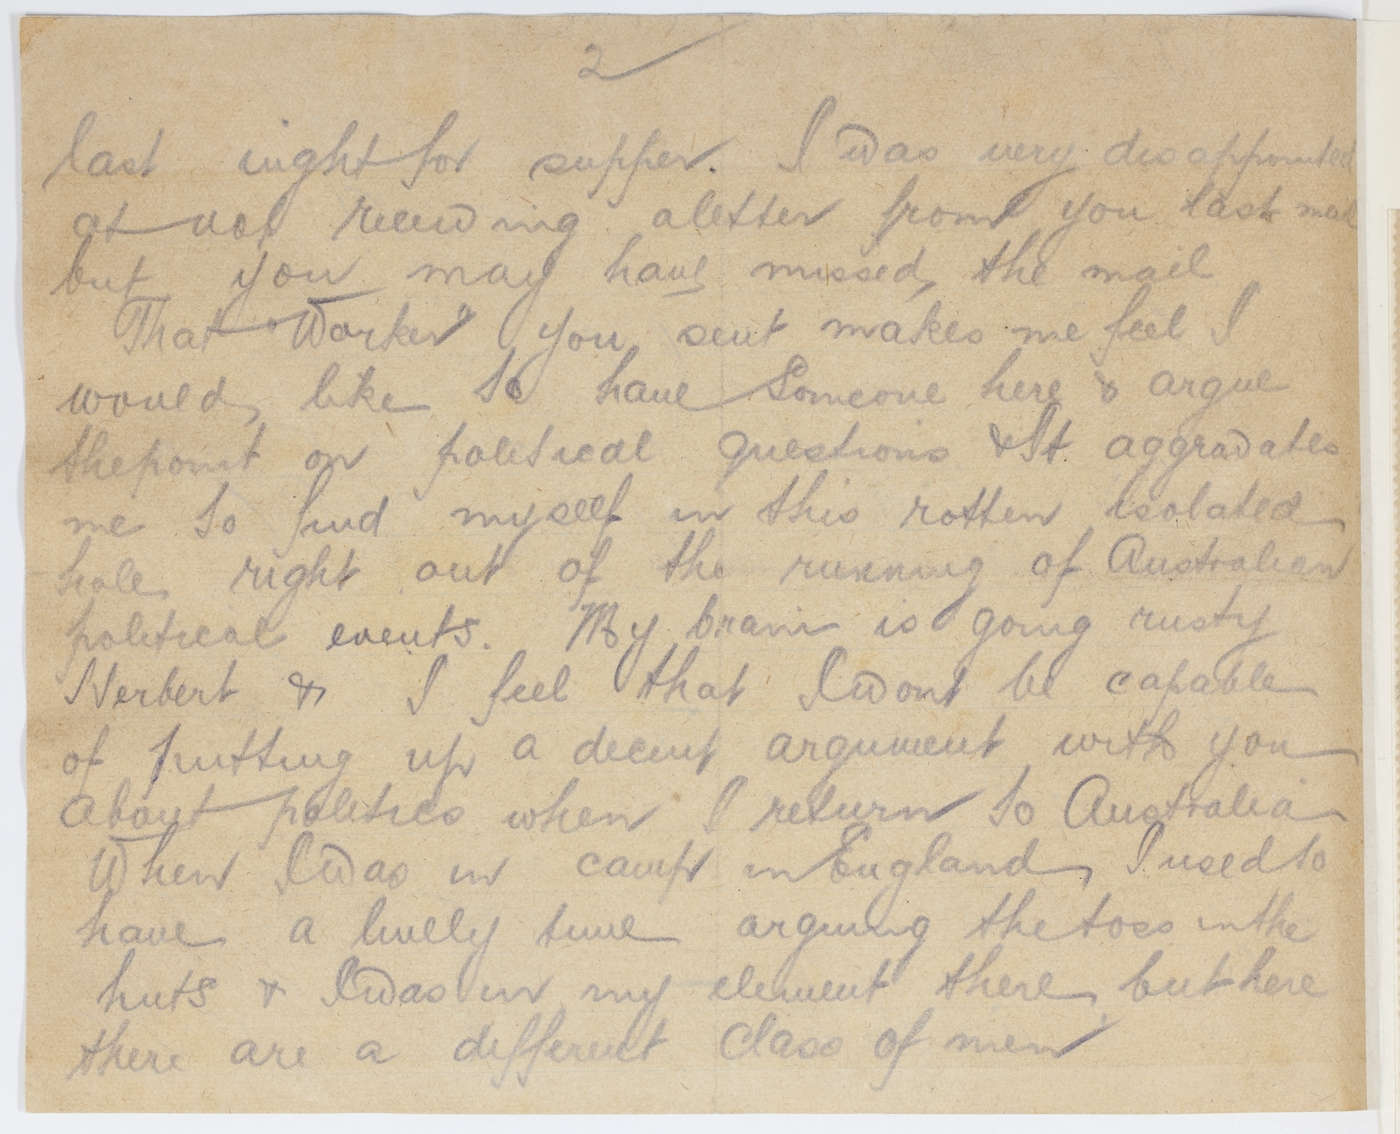 2
last night for supper. I was very disappointed
at not receiving a letter from you last mail
but you may have missed the mail
That "Worker" you sent makes me feel I
would like to have someone here & argue
the point on political questions & It aggravates
me to find myself in this rotten isolated
hole right out of the running of Australian
political events. My brain is going rusty
Herbert & I feel that I wont be capable
of putting up a decent argument with you
about politics when I return to Australia
When I was in camp in England, I used to
have a lively time arguing the toss in the
huts & I was in my element there, but here
there are a different class of men